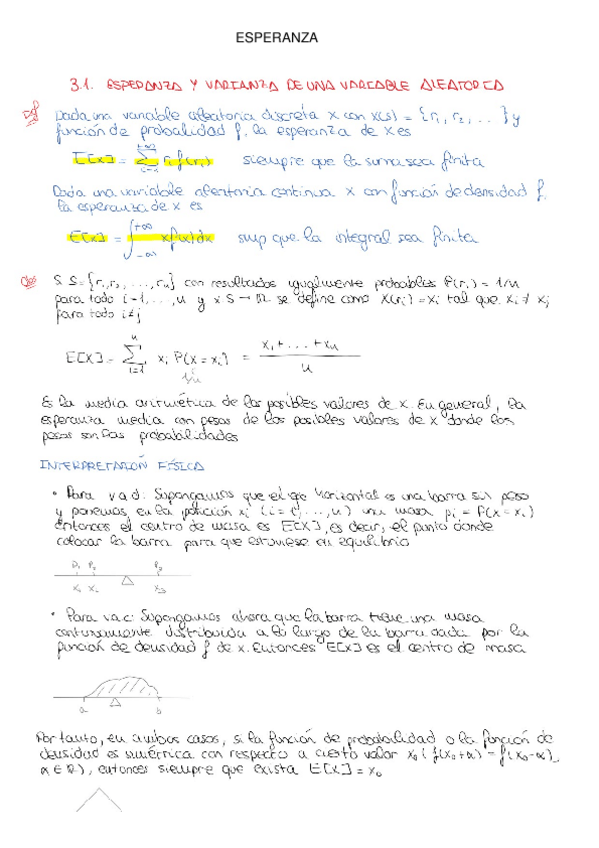 ESPERANZA
3.1. ESPERANZA Y VARIANZA DE UNA VARIABLE ALEATORIA
Def Dada una variable aleatoria discreta X con X(S) = {r₁, r₂, ...} y
función de probalidad f, la esperanza de X es
E[X] = Σ_{i=1}^{+∞} rᵢ f(rᵢ) siempre que la suma sea finita
Dada una variable aleatoria continua X con función de densidad f,
la esperanza de X es
E[X] = ∫_{-∞}^{+∞} x f(x) dx sup que la integral sea finita
Obs S. S = {r₁, r₂, ..., rₙ} con resultados igualmente probables P(rᵢ) = 1/n
para todo i = 1, ..., n y X: S → ℝ se define como X(rᵢ) = xᵢ tal que xᵢ ≠ xⱼ
para todo i ≠ j
E[X] = Σ_{i=1}^{n} xᵢ P(X = xᵢ) = (x₁ + ... + xₙ)/n
1/n
Es la media aritmética de los posibles valores de X. En general, la
esperanza media con pesos de los posibles valores de X donde los
pesos son las probabilidades
INTERPRETACIÓN FÍSICA
• Para v.a.d: Supongamos que el eje horizontal es una barra sin peso
y ponemos, en la posición xᵢ (i = 1, ..., n) una masa pᵢ = P(X = xᵢ)
Entonces el centro de masa es E[X], es decir, el punto donde
colocar la barra para que estuviese en equilibrio
P₁ P₂
x₁ x₂
• Para v.a.c: Supongamos ahora que la barra tiene una masa
continuamente distribuida a lo largo de la barra dada por la
función de densidad f de X. Entonces E[X] es el centro de masa
a b
Por tanto, en ambos casos, si la función de probabilidad o la función de
densidad es simétrica con respecto a cierto valor x₀ (f(x₀+α) = f(x₀-α),
α ∈ ℝ), entonces siempre que exista E[X] = x₀